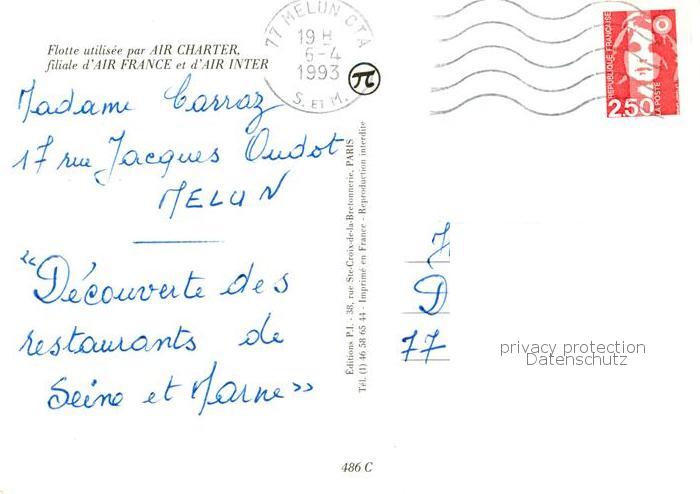 Flotte utilisée par AIR CHARTER,
filiale d'AIR FRANCE et d'AIR INTER
77 MELUN CTA
19 H
6-4
1993
S. ET M.
RÉPUBLIQUE FRANÇAISE
2,50
LA POSTE
Madame Carraz
17 rue Jacques Oudot
MELUN
"Découverte des
restaurants de
Seine et Marne"
Éditions P.I. - 38, rue Ste-Croix-de-la-Bretonnerie, PARIS
Tél. (1) 46 58 65 44 - Imprimé en France - Reproduction interdite
J
D
77
privacy protection
Datenschutz
486 C